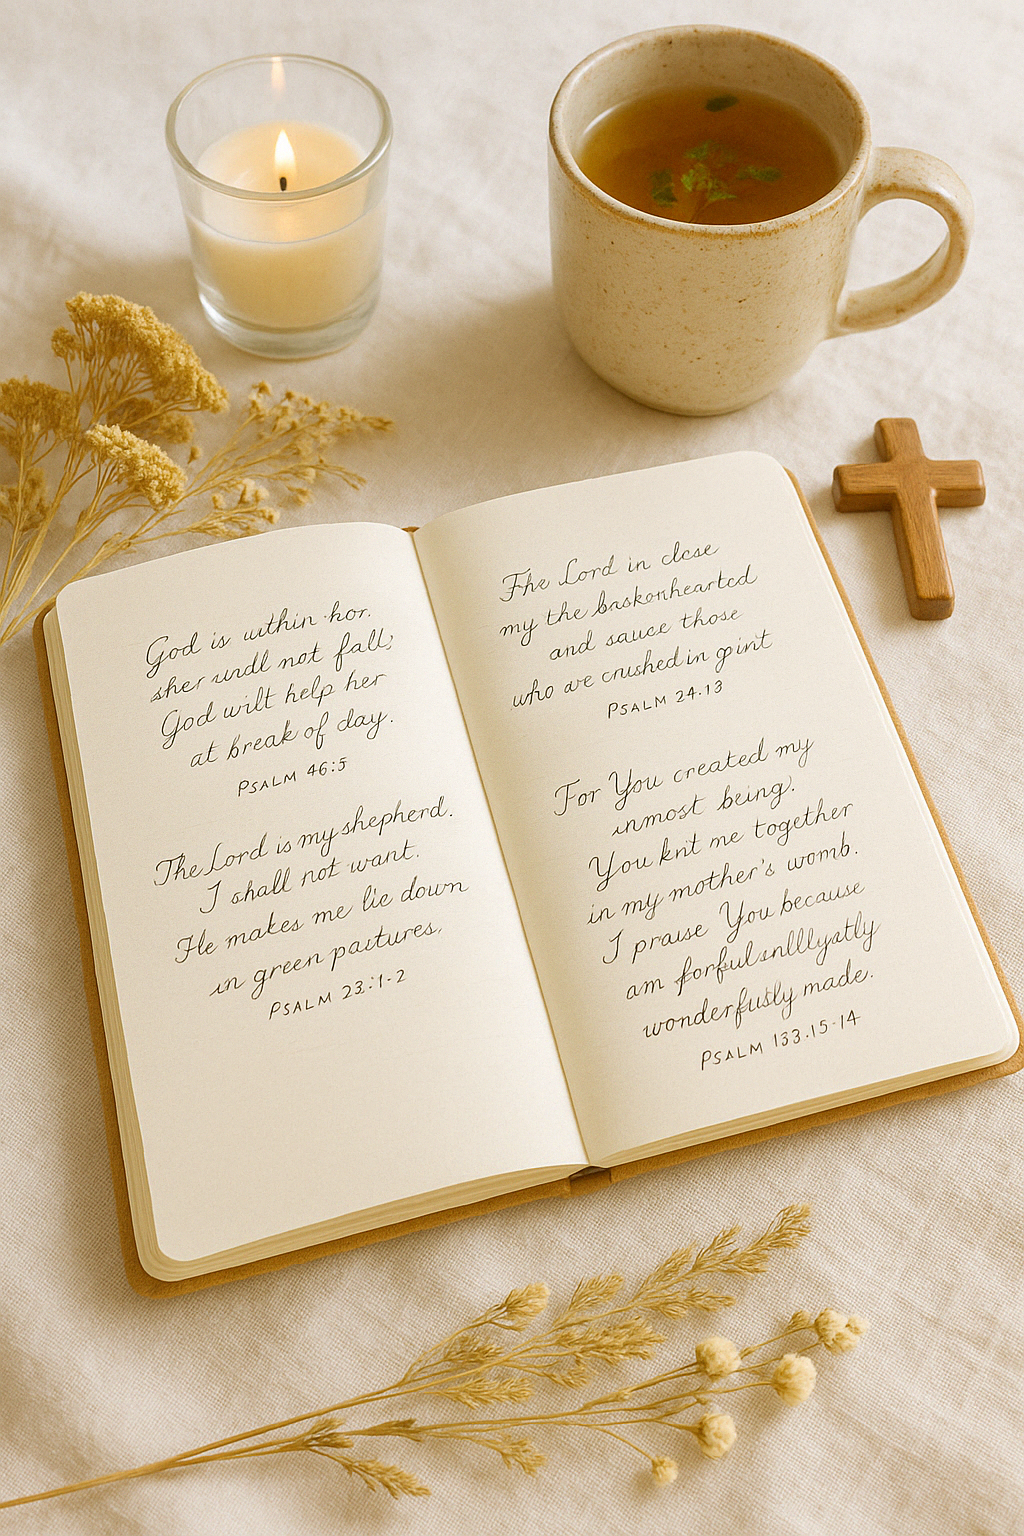 God is within hor.
sher undl not fall;
God wilt help her
at break of day.
PSALM 46:5
The Lord is my shepherd.
I shall not want.
He makes me lie down
in green pautures,
PSALM 23:1-2
Fhe Lord in clcse
my the baskonheartcd
and sauce those
who are crushed in gpint
PSALM 24.13
For You created my
inmost being.
You knit me together
in my mother's womb.
I praise You because
am
wonderfusly made.
PSALM 133.15-14